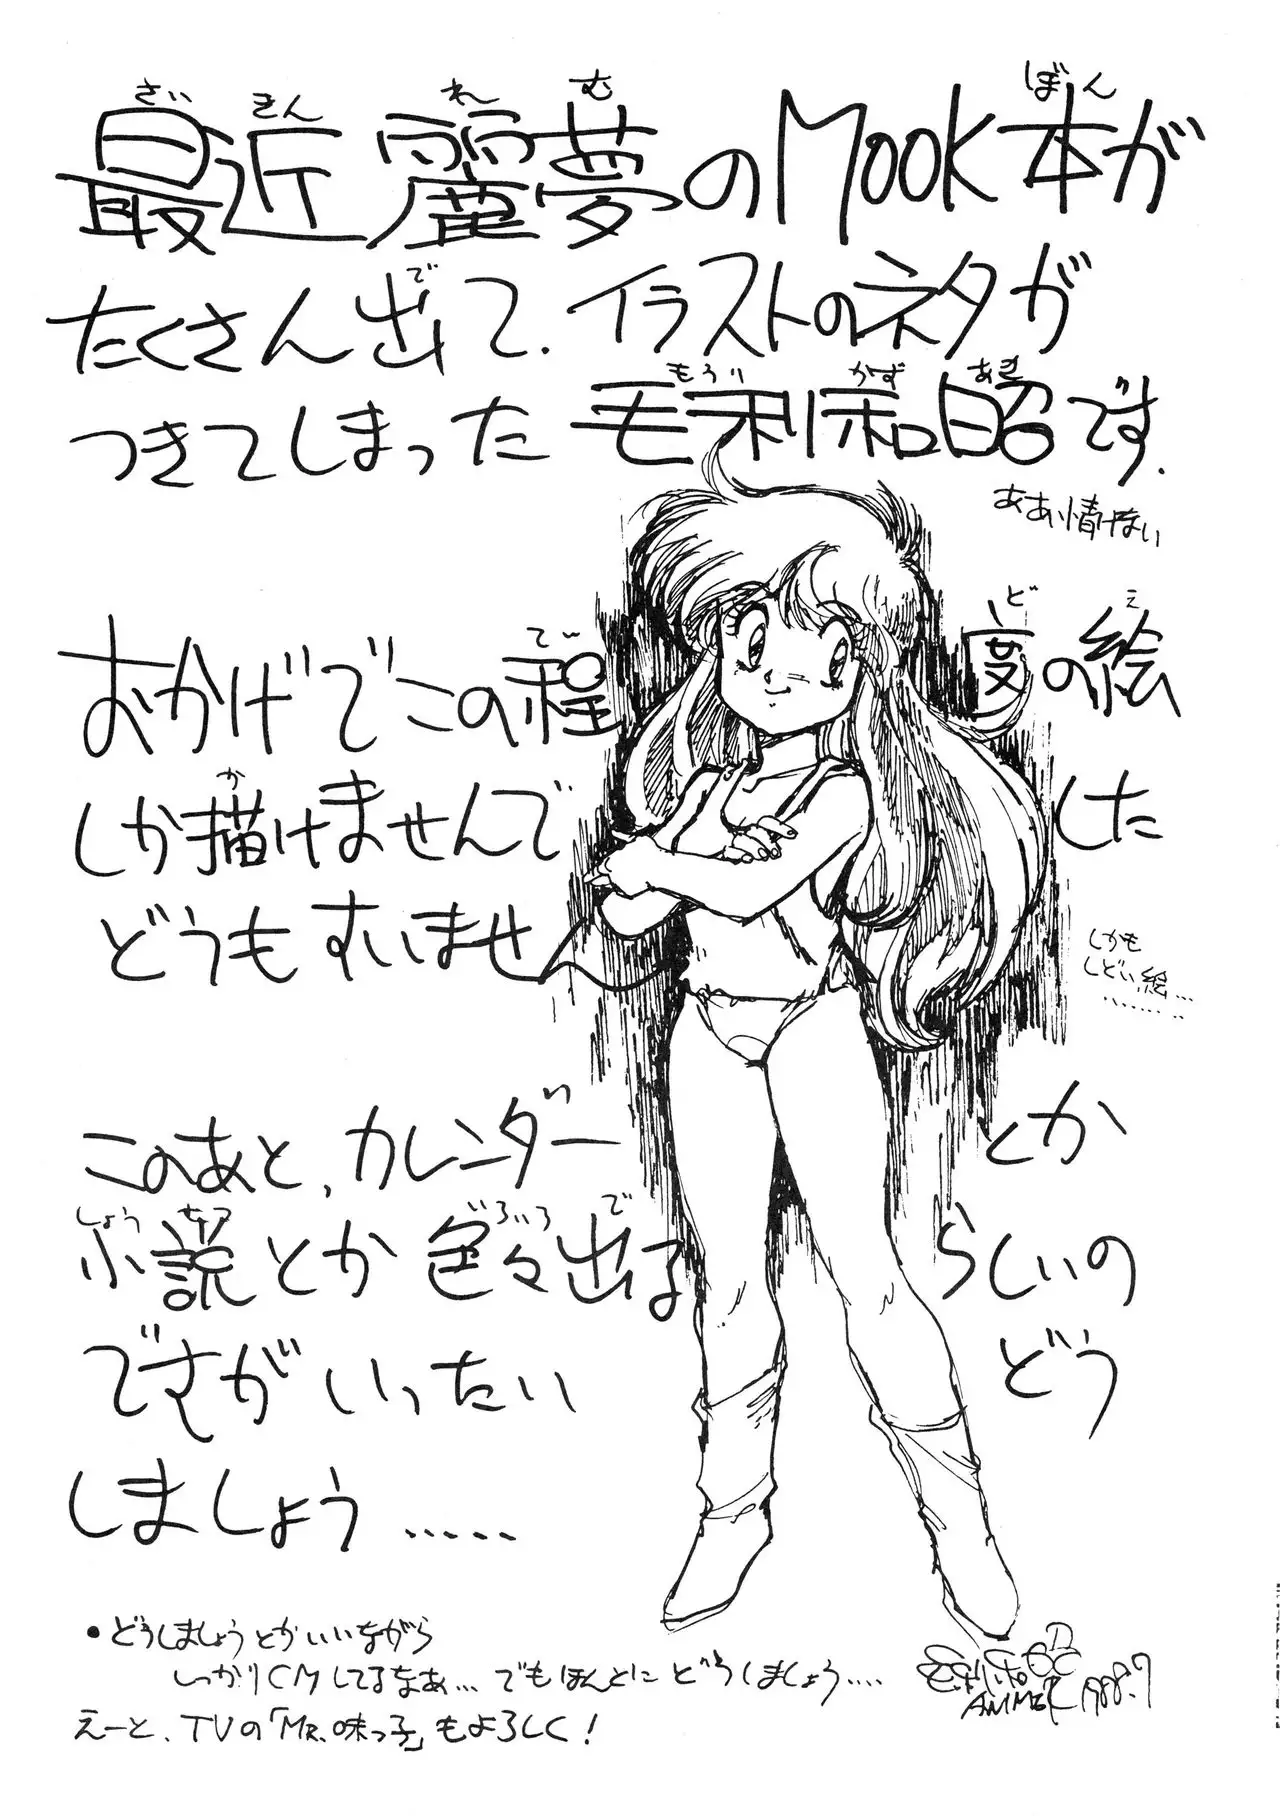 最近麗夢のMOOK本が
たくさん出て、イラストのネタが
つきてしまった毛利和昭です。
ああ情けない
おかげでこの程度の絵
しか描けませんでした
どうもすいませ
しかも
しどい絵…
………
このあと、カレンダーとか
小説とか色々出るらしいの
ですがいったいどう
しましょう……
・どうしましょうとかいいながら
しっかりCMしてるなあ…でもほんとにどうしましょう….
えーと、TVの「MR.味っ子」もよろしく!
ANIMER 1988.7